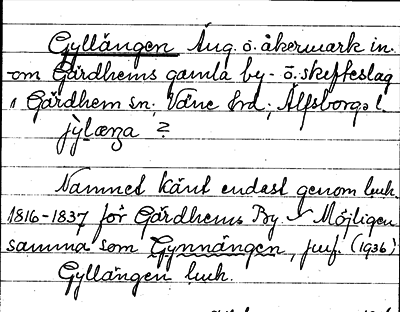 Gyllängen Äng o. åkermark in-
om Gärdhems gamla by- o. skifteslag
i Gärdhem sn, Väne hd, Älfsborgs l.
jỳḷæŋa ?
Namnet känt endast genom luuk.
1816-1837 för Gärdhems By. Möjligen
samma som Gynnängen, jmf. (1936)
Gyllängen luuk.